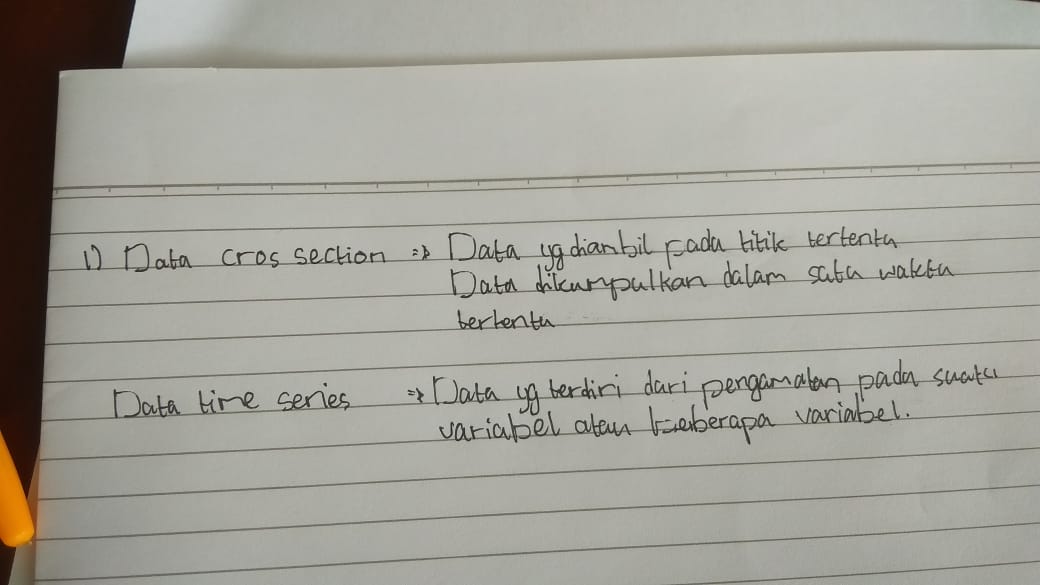 1) Data cros section => Data yg diambil pada titik tertentu
Data dikumpulkan dalam satu waktu
tertentu
Data time series => Data yg terdiri dari pengamatan pada suatu
variabel atau beberapa variabel.